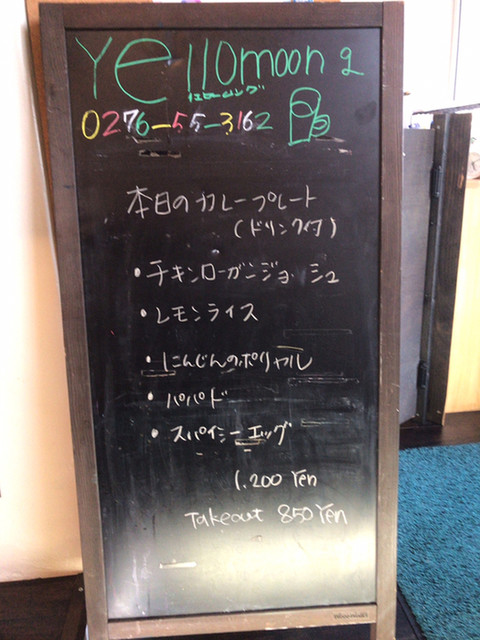 Yellomoon g
イエロームーング
0276-55-3162
本日のカレープレート
(ドリンク付)
・チキンローガンジョーシュ
・レモンライス
・にんじんのポリヤル
・パパド
・スパイシーエッグ
1.200 Yen
Takeout 850 Yen